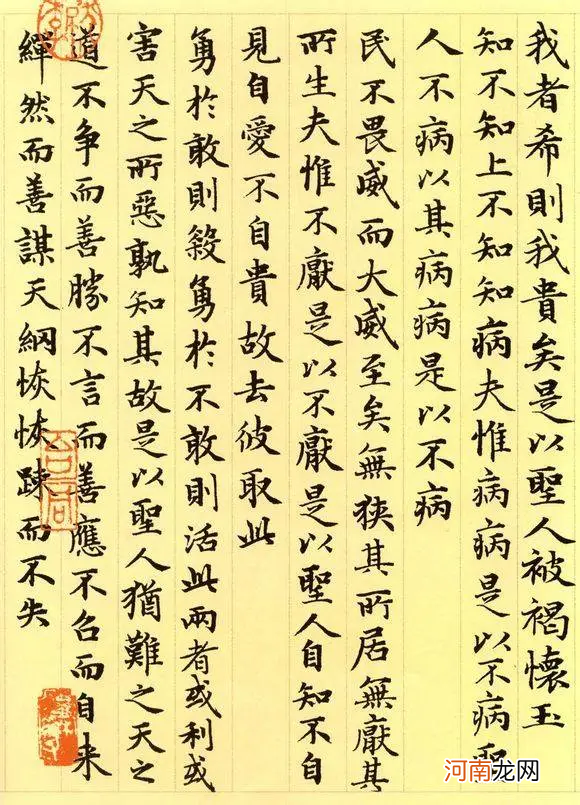 我者希則我貴矣是以聖人被褐懷玉
知不知上不知知病夫惟病病是以不病聖
人不病以其病病是以不病
民不畏威而大威至矣無狹其所居無厭其
所生夫惟不厭是以不厭是以聖人自知不自
見自愛不自貴故去彼取此
勇於敢則殺勇於不敢則活此兩者或利或
害天之所惡孰知其故是以聖人猶難之天之
道不争而善勝不言而善應不召而自来
繟然而善謀天網恢恢踈而不失
河南龙网